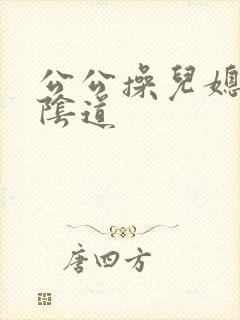 公公操兒媳
陰道
唐四方